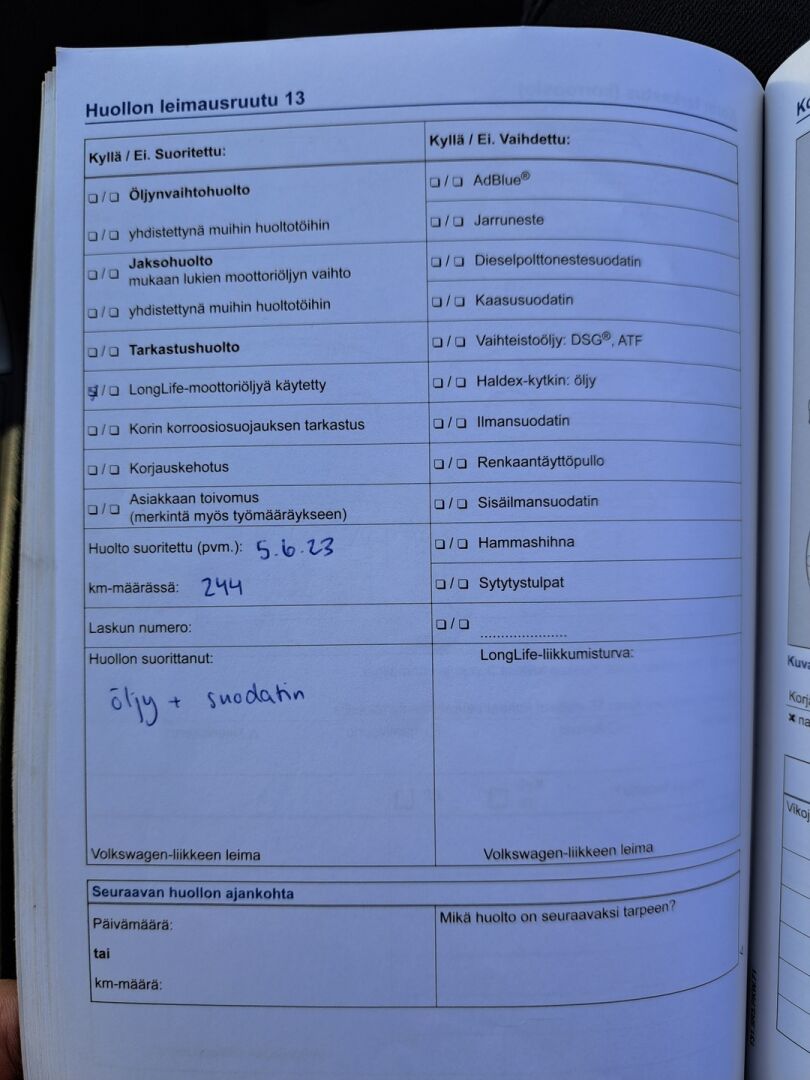 Huollon leimausruutu 13
Kyllä / Ei. Suoritettu:
❏ / ❏ Öljynvaihtohuolto
❏ / ❏ yhdistettynä muihin huoltotöihin
❏ / ❏ Jaksohuolto
mukaan lukien moottoriöljyn vaihto
❏ / ❏ yhdistettynä muihin huoltotöihin
❏ / ❏ Tarkastushuolto
☒ / ❏ LongLife-moottoriöljyä käytetty
❏ / ❏ Korin korroosiosuojauksen tarkastus
❏ / ❏ Korjauskehotus
❏ / ❏ Asiakkaan toivomus
(merkintä myös työmääräykseen)
Huolto suoritettu (pvm.): 5.6.23
km-määrässä: 244
Laskun numero:
Huollon suorittanut:
öljy + suodatin
Volkswagen-liikkeen leima
Kyllä / Ei. Vaihdettu:
❏ / ❏ AdBlue®
❏ / ❏ Jarruneste
❏ / ❏ Dieselpolttonestesuodatin
❏ / ❏ Kaasusuodatin
❏ / ❏ Vaihteistoöljy: DSG®, ATF
❏ / ❏ Haldex-kytkin: öljy
❏ / ❏ Ilmansuodatin
❏ / ❏ Renkaantäyttöpullo
❏ / ❏ Sisäilmansuodatin
❏ / ❏ Hammashihna
❏ / ❏ Sytytystulpat
❏ / ❏ ......................
LongLife-liikkumisturva:
Volkswagen-liikkeen leima
Seuraavan huollon ajankohta
Päivämäärä:
tai
km-määrä:
Mikä huolto on seuraavaksi tarpeen?